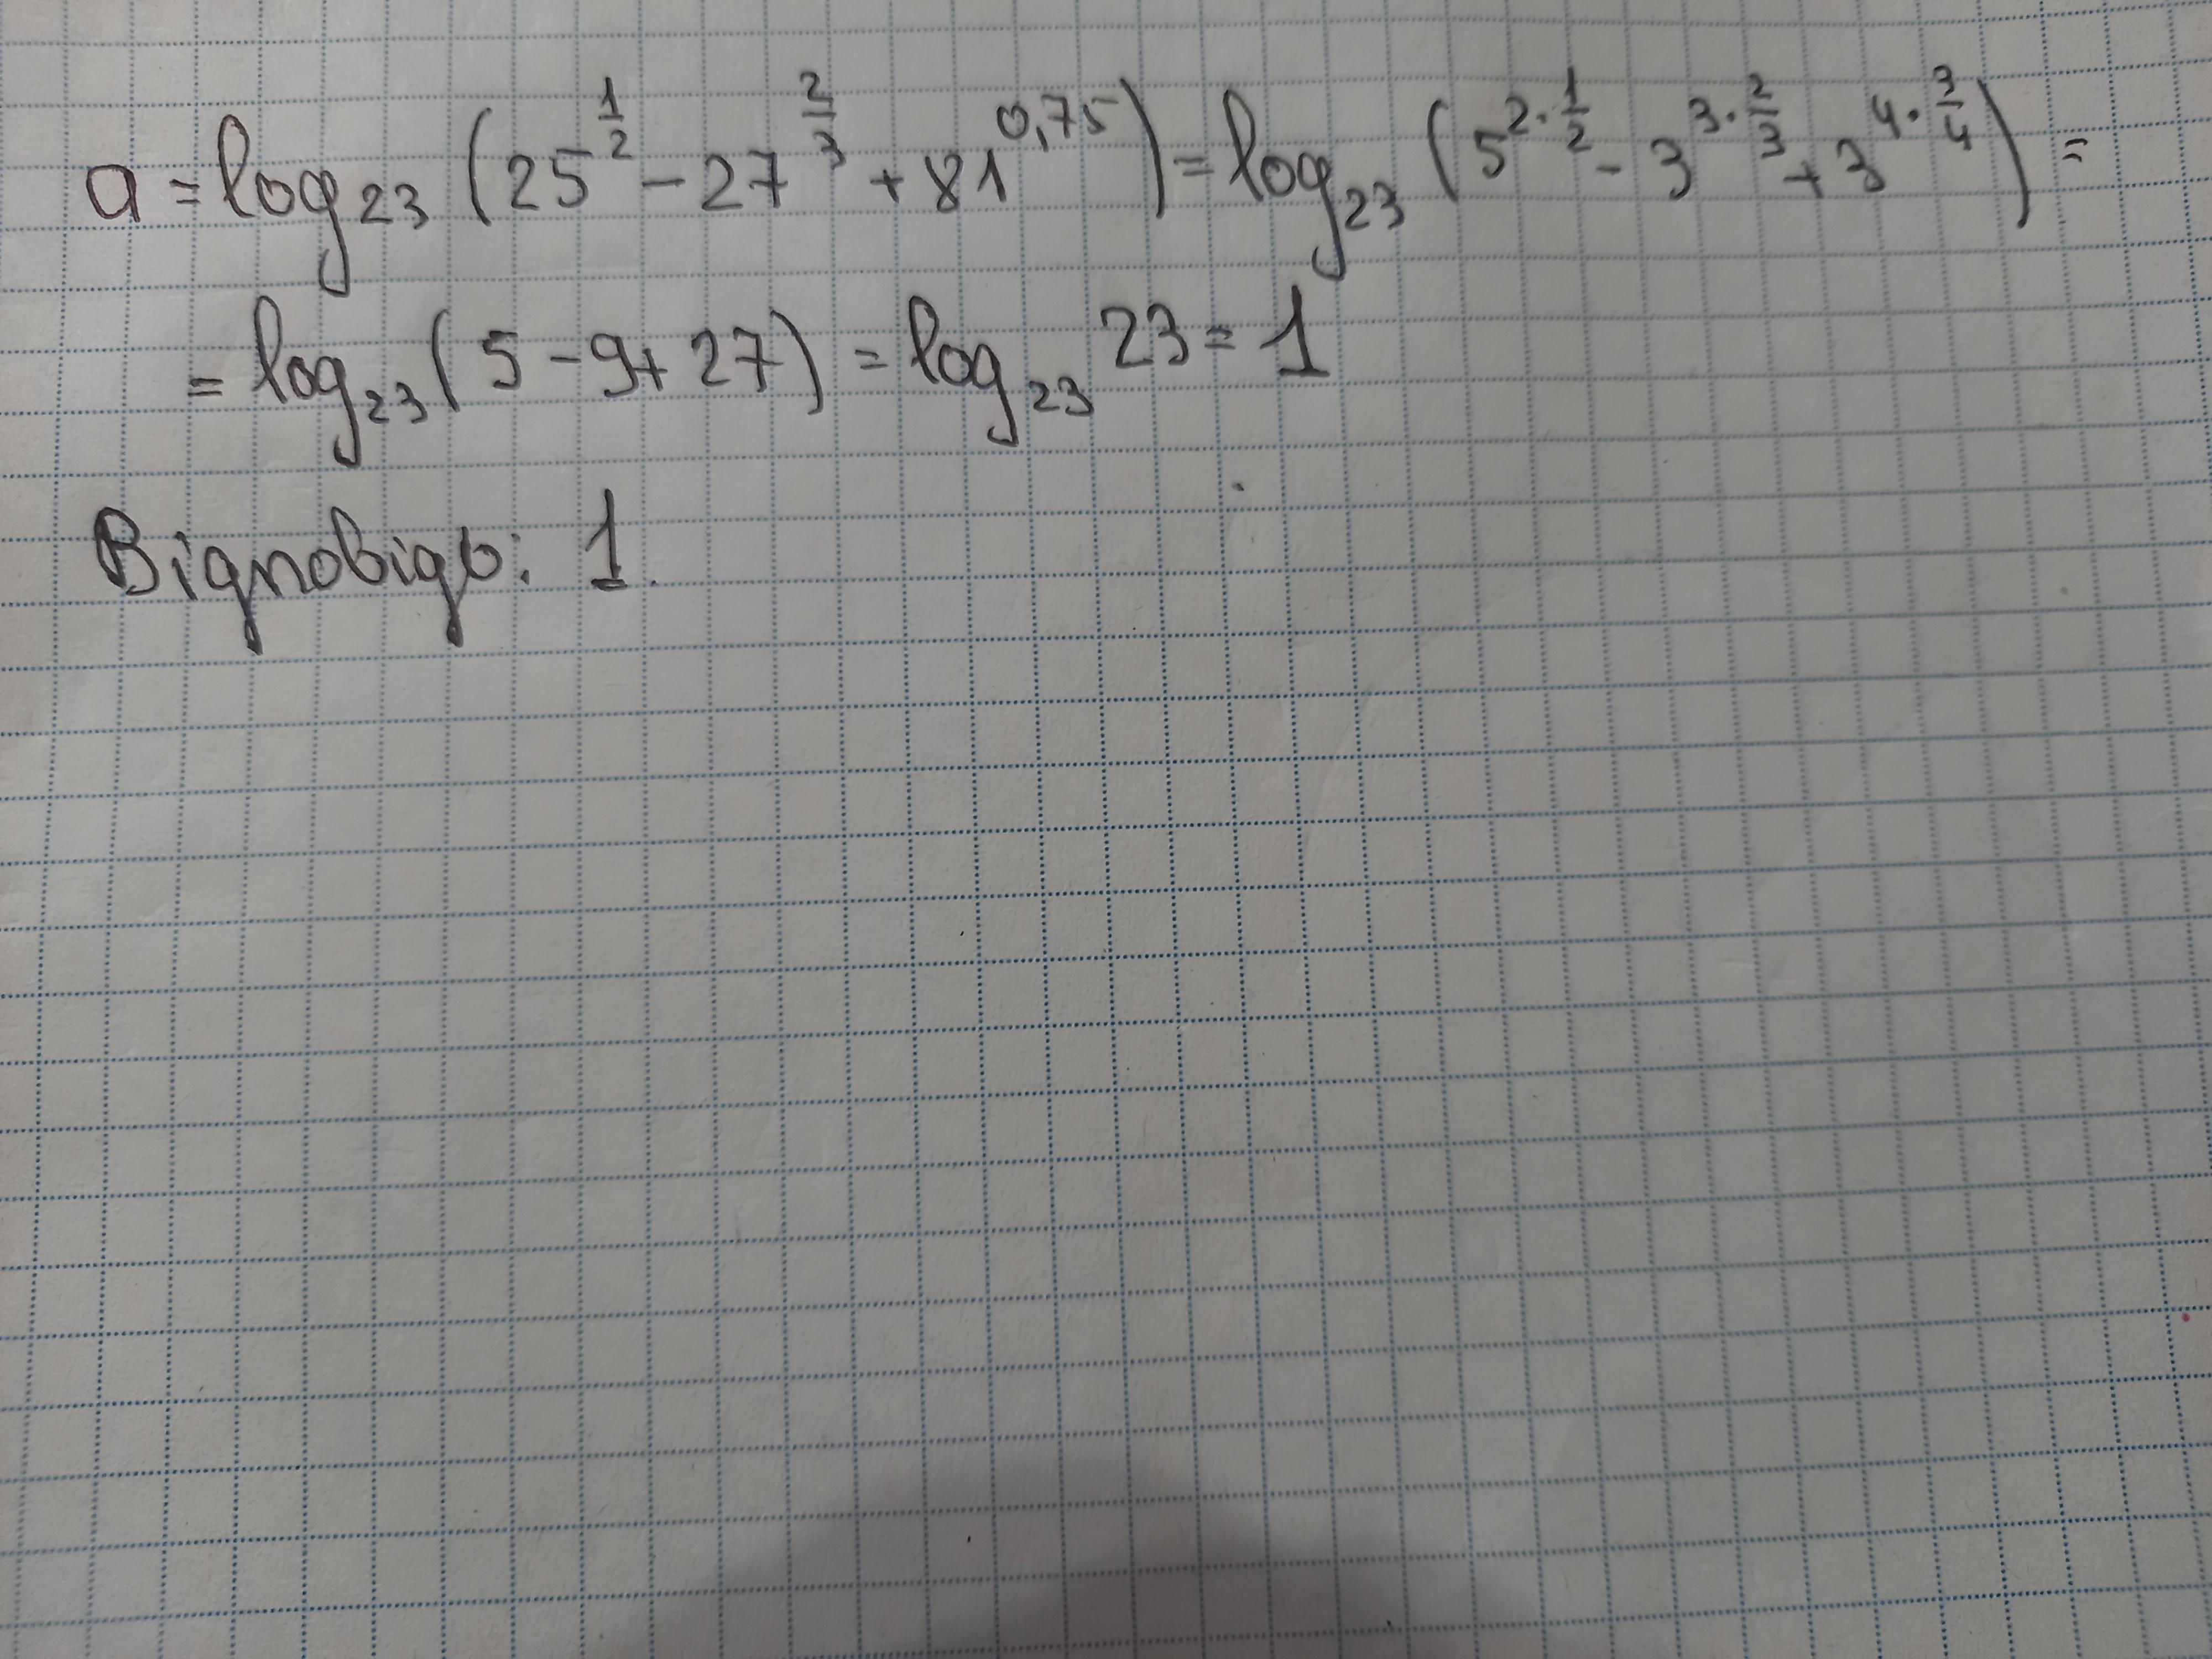 a = log₂₃ (25^(1/2) − 27^(2/3) + 81^(0,75)) = log₂₃ (5^(2·1/2) − 3^(3·2/3) + 3^(4·3/4)) =
= log₂₃ (5 − 9 + 27) = log₂₃ 23 = 1
Відповідь: 1.